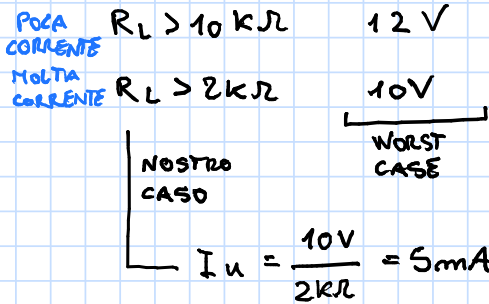 POCA CORRENTE R_L > 10 KΩ 12 V
MOLTA CORRENTE R_L > 2KΩ 10V
NOSTRO CASO
WORST CASE
I_u = 10V / 2KΩ = 5mA